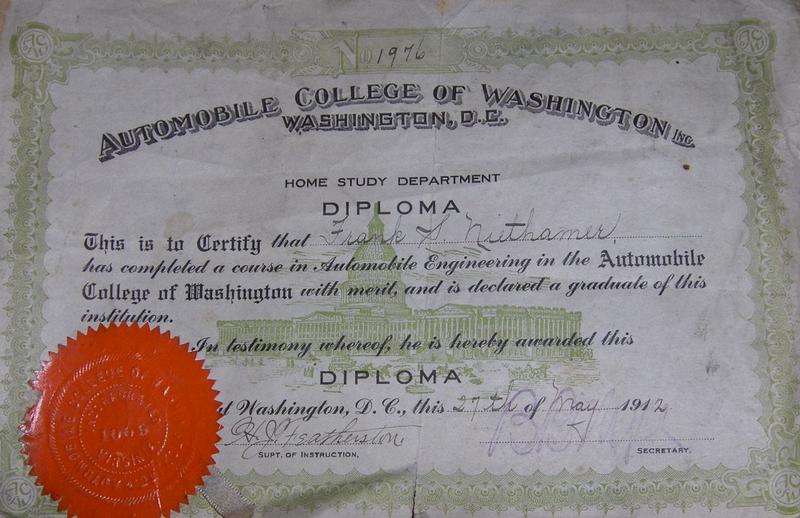 No 1976
AUTOMOBILE COLLEGE OF WASHINGTON INC.
WASHINGTON, D.C.
HOME STUDY DEPARTMENT
DIPLOMA
This is to Certify that Frank S. Niethamer,
has completed a course in Automobile Engineering in the Automobile
College of Washington with merit, and is declared a graduate of this
institution.
In testimony whereof, he is hereby awarded this
DIPLOMA
Washington, D. C., this 27th of May 1912
H. J. Featherston
SUPT. OF INSTRUCTION,
SECRETARY.
AUTOMOBILE COLLEGE OF
1909